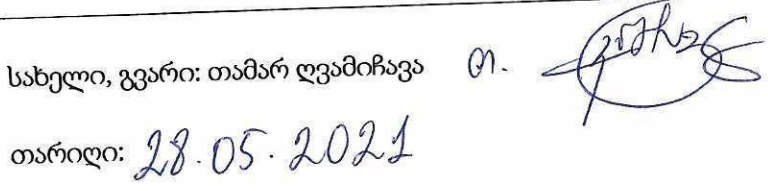 სახელი, გვარი: თამარ ღვამიჩავა თ.
თარიღი: 28.05.2021